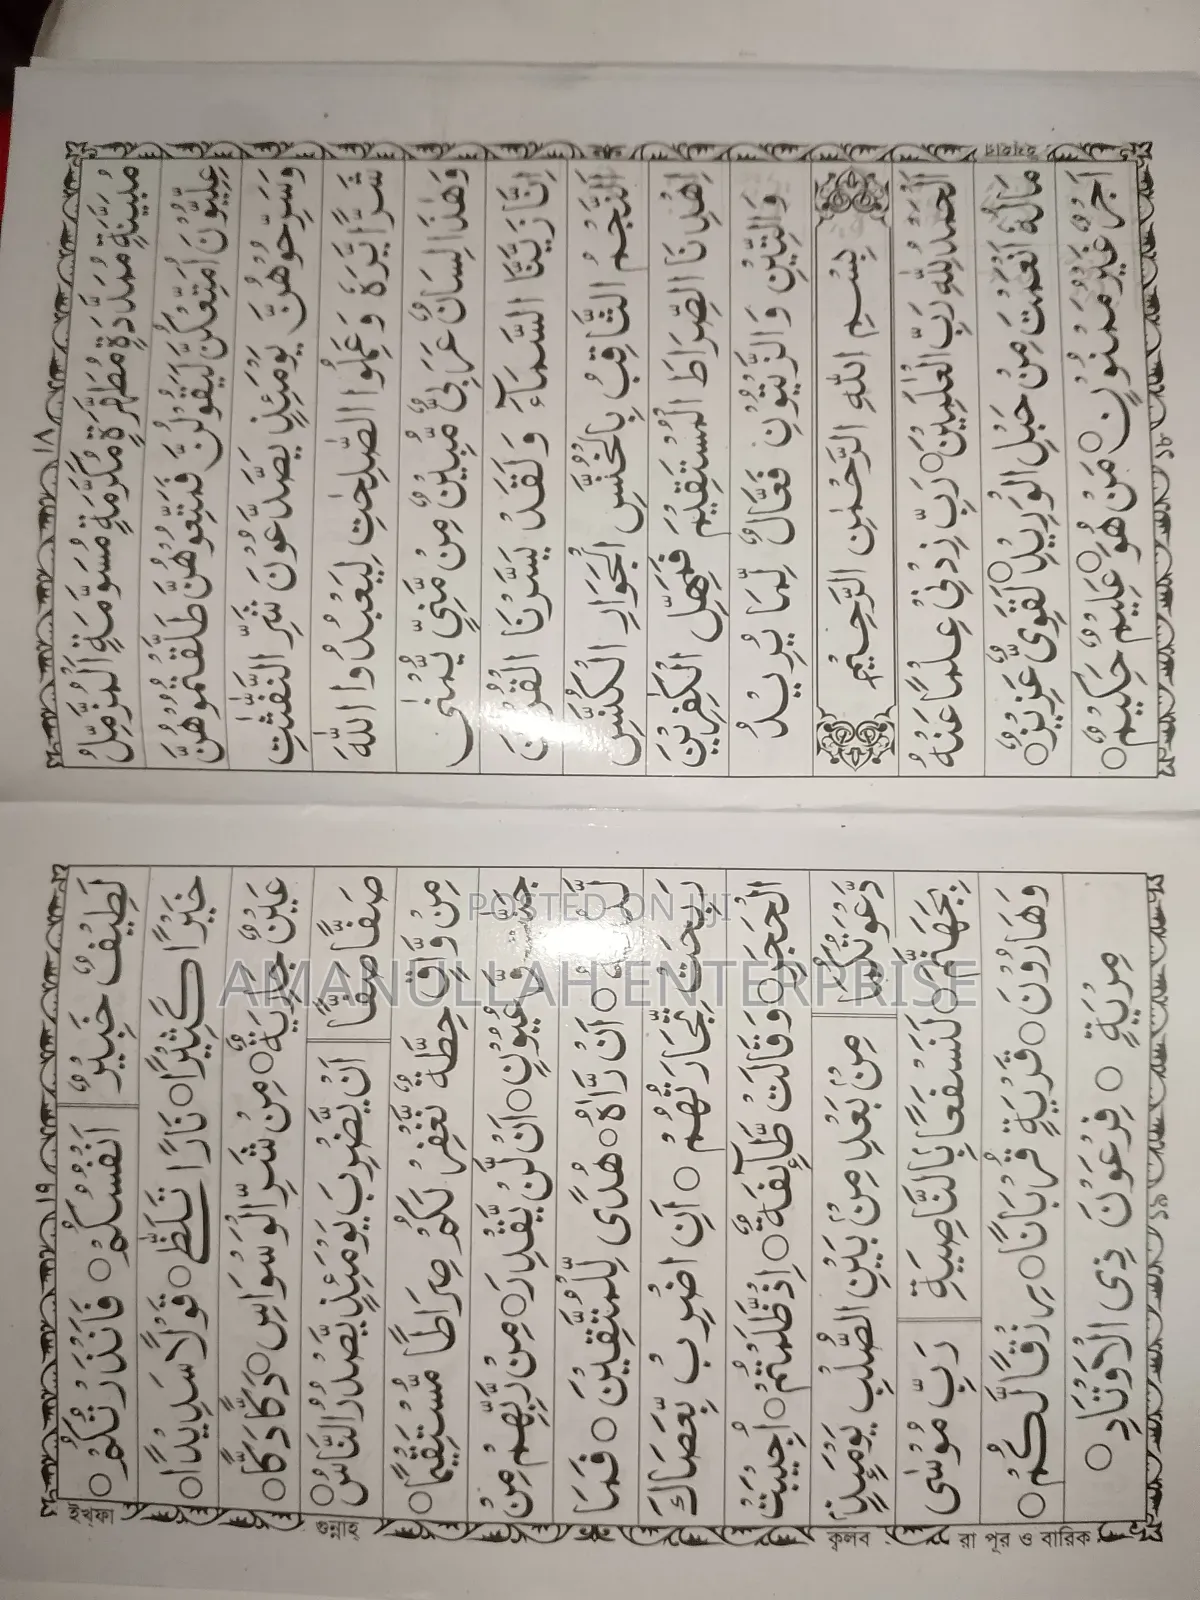 ١٨
مُّبَيِّنَةٍ مُّمَدَّدَةٍ مُّطَهَّرَةٍ مُّكَرَّمَةٍ مُسَوَّمَةٍ الْمُزَّمِّلُ
عِلِّيُّوْنَ اُمَتِّعْكُنَّ لَيَقُوْلُنَّ فَمَتِّعُوْهُنَّ طَلَّقْتُمُوْهُنَّ
وَسَرِّحُوْهُنَّ يَوْمَئِذٍ يَّصَّدَّعُوْنَ شَرِّ النَّفّٰثٰتِ
شَرًّا يَّرَهٗ وَعَمِلُوا الصّٰلِحٰتِ لِيَعْبُدُوا اللّٰهَ
وَهٰذَا لِسَانٌ عَرَبِيٌّ مُّبِيْنٌ مِّنْ مَّنِيٍّ يُّمْنٰى
اِنَّا زَيَّنَّا السَّمَآءَ وَلَقَدْ يَسَّرْنَا الْقُرْاٰنَ
اَلنَّجْمُ الثَّاقِبُ بِالْخُنَّسِ الْجَوَارِ الْكُنَّسِ
اِهْدِنَا الصِّرَاطَ الْمُسْتَقِيْمَ فَمَهِّلِ الْكٰفِرِيْنَ
وَالتِّيْنِ وَالزَّيْتُوْنِ فَعَّالٌ لِّمَا يُرِيْدُ
بِسْمِ اللّٰهِ الرَّحْمٰنِ الرَّحِيْمِ
اَلْحَمْدُ لِلّٰهِ رَبِّ الْعٰلَمِيْنَ ○ رَبِّ زِدْنِيْ عِلْمًا عَنْهُ
مَالَهٗ اَنْعَمْتَ مِنْ حَبْلِ الْوَرِيْدِ ○ لَقَوِيٌّ عَزِيْزٌ ○
اَجْرٌ غَيْرُ مَمْنُوْنٍ ○ مَنْ هُوَ ○ عَلِيْمٌ حَكِيْمٌ ○
١٩
لَطِيْفٌ خَبِيْرٌ اَنْفُسَكُمْ ○ فَاَنْذَرْتُكُمْ ○
خَيْرًا كَثِيْرًا ○ نَارًا تَلَظّٰى ○ قَوْلًا سَدِيْدًا ○
عَيْنٌ جَارِيَةٌ ○ مِنْ شَرِّ الْوَسْوَاسِ ○ دَكًّا دَكًّا ○
صَفًّا صَفًّا اَنْ يَّضْرِبَ يَوْمَئِذٍ يَّصْدُرُ النَّاسُ ○
مِنْ وَّاقٍ حِطَّةٌ نَّغْفِرْ لَكُمْ صِرَاطًا مُّسْتَقِيْمًا ○
عُيُوْنٍ ○ اَنْ لَّنْ يَّقْدِرَ ○ مِنْ رَّبِّهِمْ مِنْ
اَنْ رَّاٰهُ ○ هُدًى لِّلْمُتَّقِيْنَ ○ فَمَا
رَبِحَتْ تِّجَارَتُهُمْ ○ اَنِ اضْرِبْ بِّعَصَاكَ
الْحَجَرَ ○ وَقَالَتْ طَّآئِفَةٌ ○ اِذْ ظَّلَمْتُمْ ○ اُجِيْبَتْ
دَّعْوَتُكُمَا مِنْ بَعْدِ مِنْ بَيْنِ الصُّلْبِ يَوْمَئِذٍ
بِجَهَنَّمَ ○ لَنَسْفَعًا بِالنَّاصِيَةِ رَبِّ مُوْسٰى
وَهَارُوْنَ ○ قَرْيَةٍ قُرْبَانًا ○ رِزْقًا لَّكُمْ ○
مِرْيَةٍ ○ فِرْعَوْنَ ذِى الْاَوْتَادِ ○
ইখ্ফা
গুন্নাহ্
ক্বলব
রা পূর ও বারিক
POSTED ON JIJI
AMANULLAH ENTERPRISE